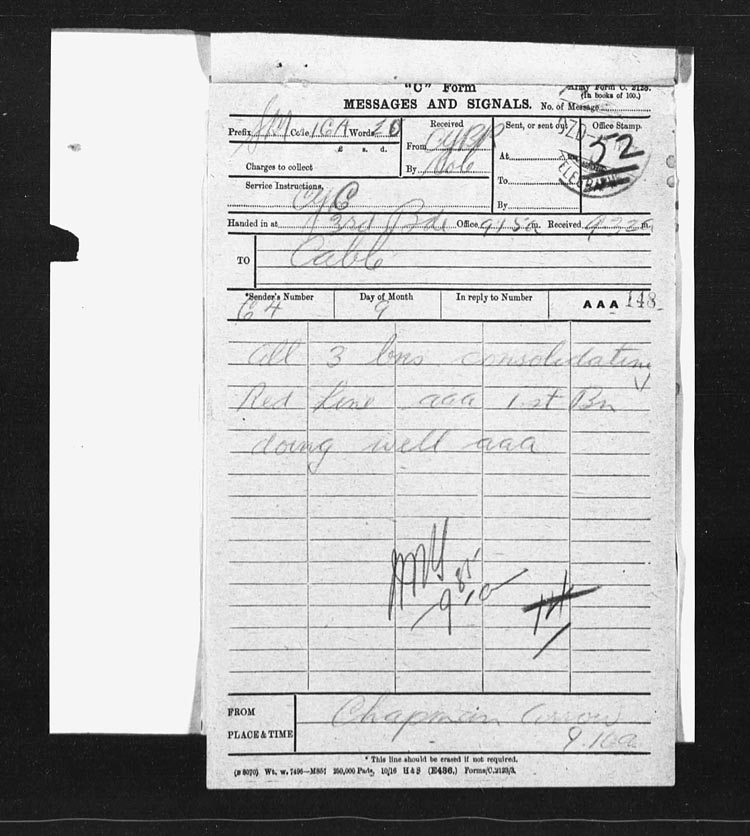 "C" Form
Army Form C. 2123.
(In books of 100.)
MESSAGES AND SIGNALS. No. of Message
Prefix SM Code Words
Received
From
By
Sent, or sent out
At m.
To
By
Office Stamp.
52
£ s. d.
Charges to collect
Service Instructions.
Handed in at 3rd Bde Office 9.15a m. Received m.
TO Cable
*Sender's Number
Day of Month
In reply to Number
AAA
9
148
All 3 bns consolidating
Red Line aaa 1st Bn
doing well aaa
FROM Chapman
PLACE & TIME 9.10a
* This line should be erased if not required.
Wt. w. 7496—M857 250,000 Pads, 10/16 H & S (E436.) Forms/C.2123/3.